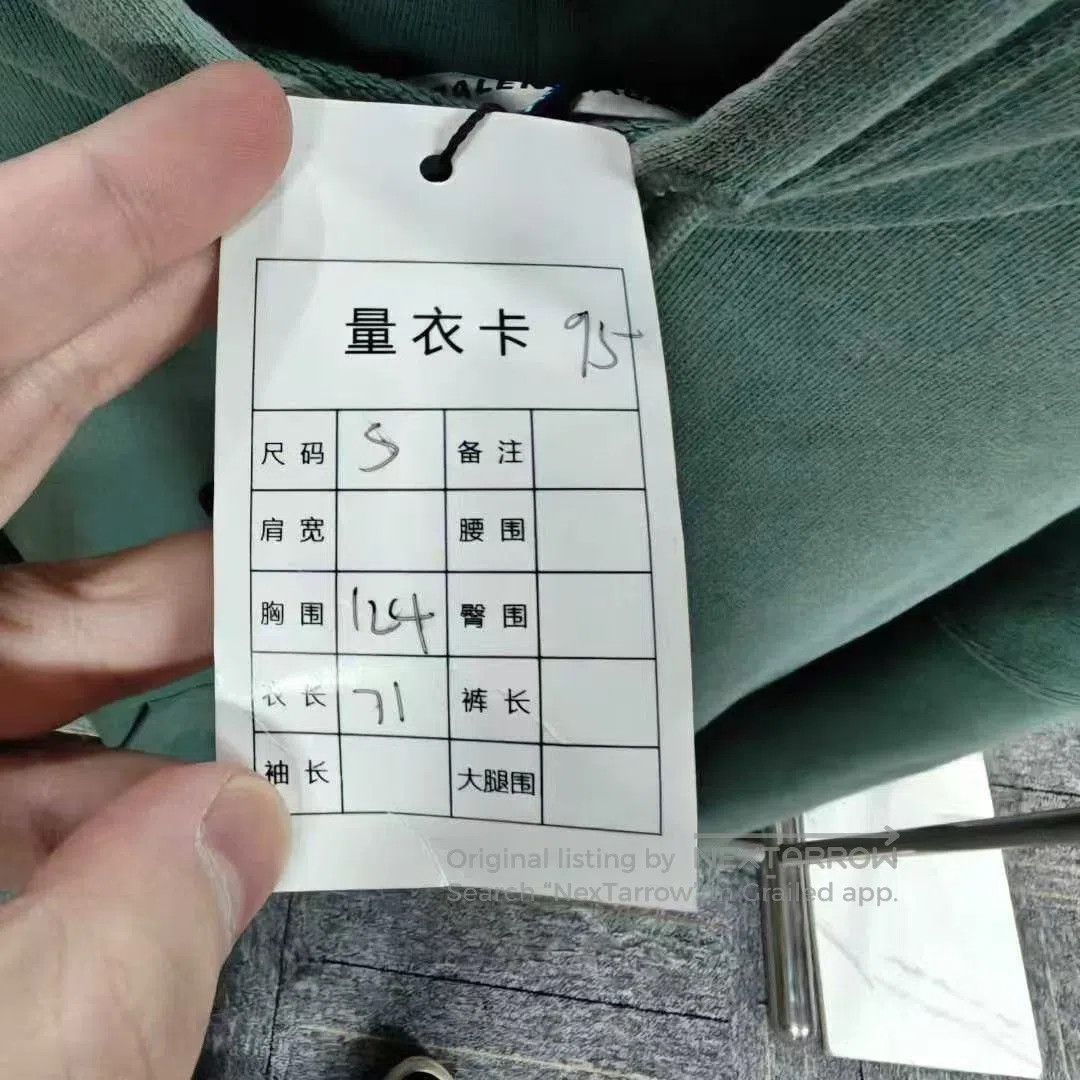 量衣卡 95
尺码 S 备注
肩宽 腰围
胸围 124 臀围
衣长 71 裤长
袖长 大腿围
Original listing by NEXTARROW
Search "NexTarrow" in Grailed app.